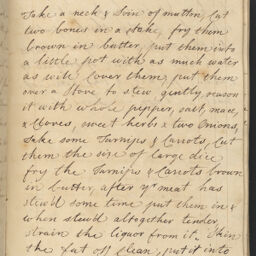 Take a neck & Loin of mutton, Cut
two bones in a stake, fry them
brown in butter, put them into
a little pot with as much water
as will Cover them, put them
over a Stove to stew gently, season
it with whole pepper, salt, mace,
& Cloves, sweet herbs & two Onions,
Take some Turnips & Carrots, Cut
them the size of large dice,
fry the Turnips & Carrots brown
in butter, after ye meat has
stew'd some time put them in &
when stew'd altogether tender,
strain the liquor from it, Skin
the fat off clean, put it into